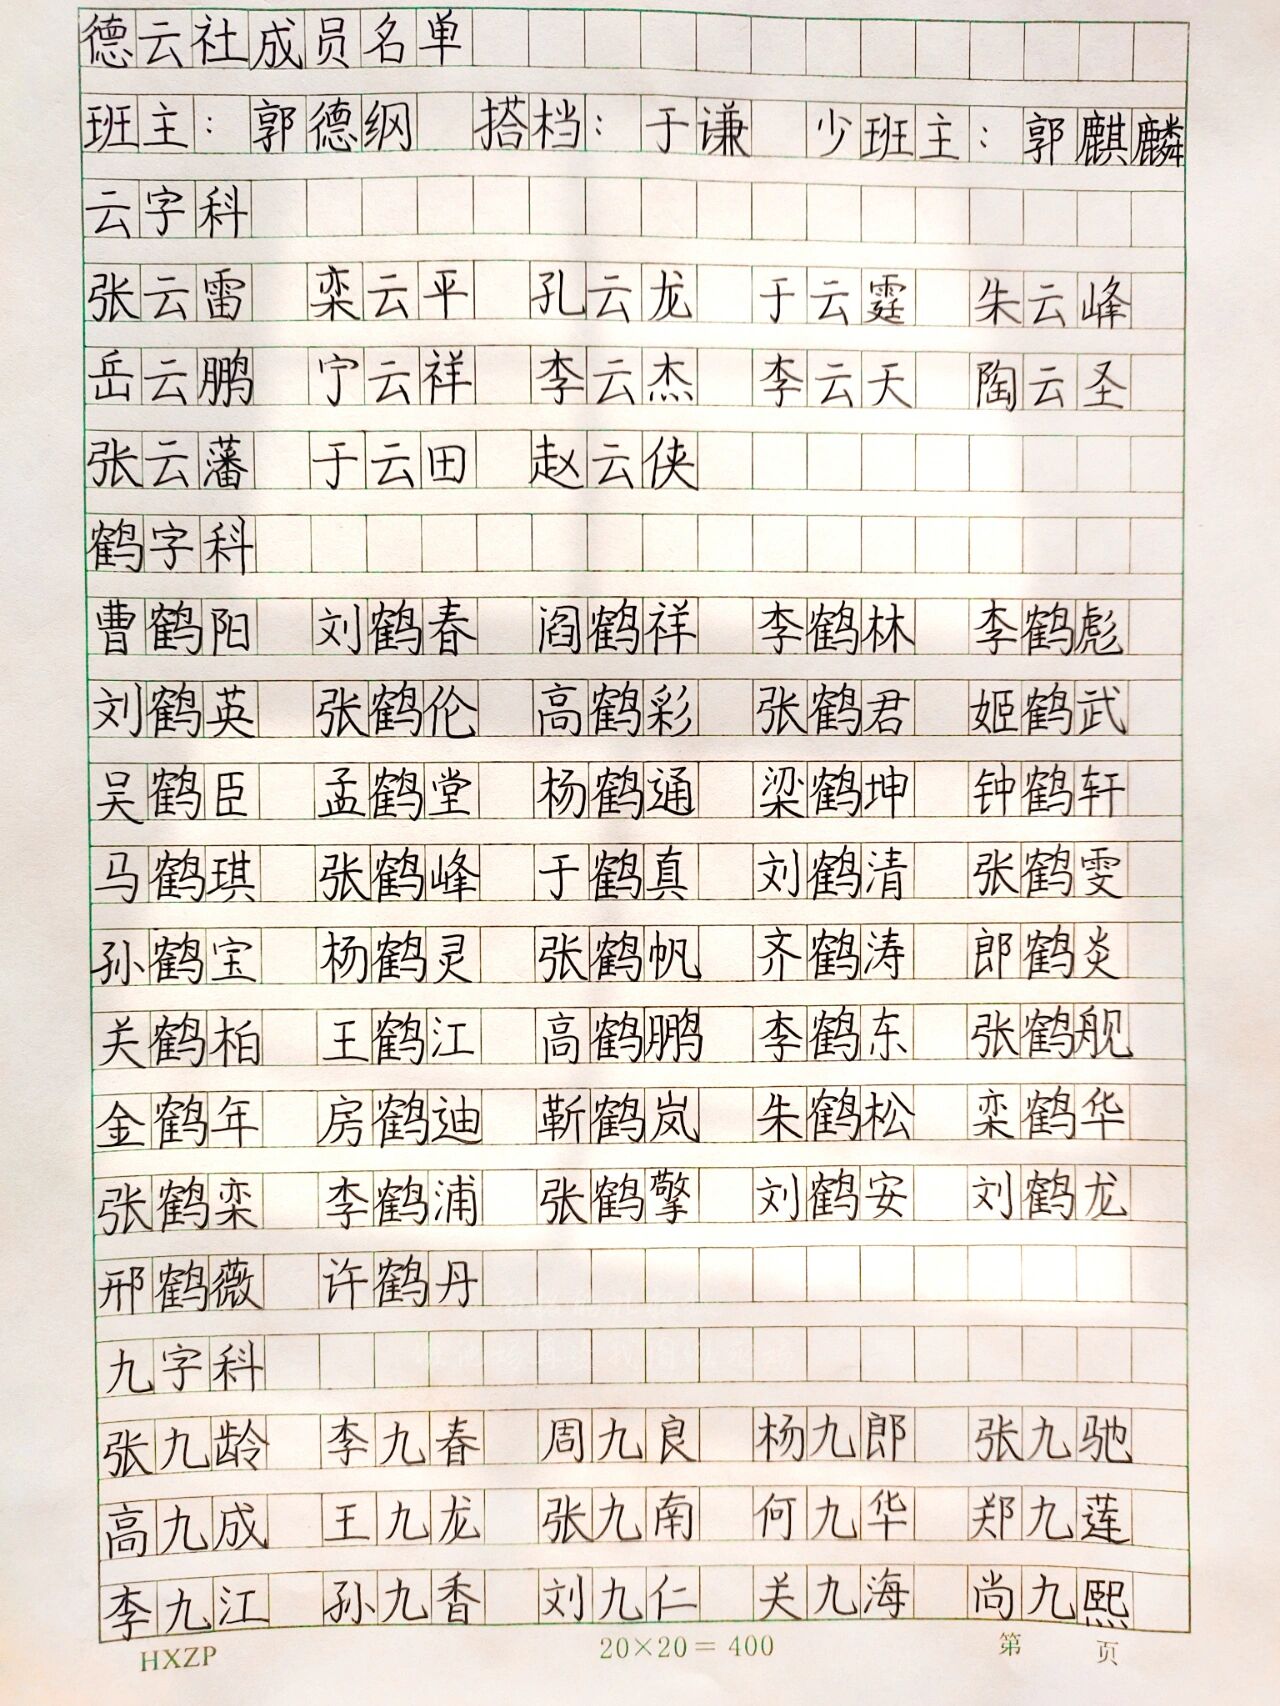 德云社成员名单
班主：郭德纲 搭档：于谦 少班主：郭麒麟
云字科
张云雷 栾云平 孔云龙 于云霆 朱云峰
岳云鹏 宁云祥 李云杰 李云天 陶云圣
张云藩 于云田 赵云侠
鹤字科
曹鹤阳 刘鹤春 阎鹤祥 李鹤林 李鹤彪
刘鹤英 张鹤伦 高鹤彩 张鹤君 姬鹤武
吴鹤臣 孟鹤堂 杨鹤通 梁鹤坤 钟鹤轩
马鹤琪 张鹤峰 于鹤真 刘鹤清 张鹤雯
孙鹤宝 杨鹤灵 张鹤帆 齐鹤涛 郎鹤炎
关鹤柏 王鹤江 高鹤鹏 李鹤东 张鹤舰
金鹤年 房鹤迪 靳鹤岚 朱鹤松 栾鹤华
张鹤栾 李鹤浦 张鹤擎 刘鹤安 刘鹤龙
邢鹤薇 许鹤丹
九字科
张九龄 李九春 周九良 杨九郎 张九驰
高九成 王九龙 张九南 何九华 郑九莲
李九江 孙九香 刘九仁 关九海 尚九熙
HXZP 20×20＝400 第 页